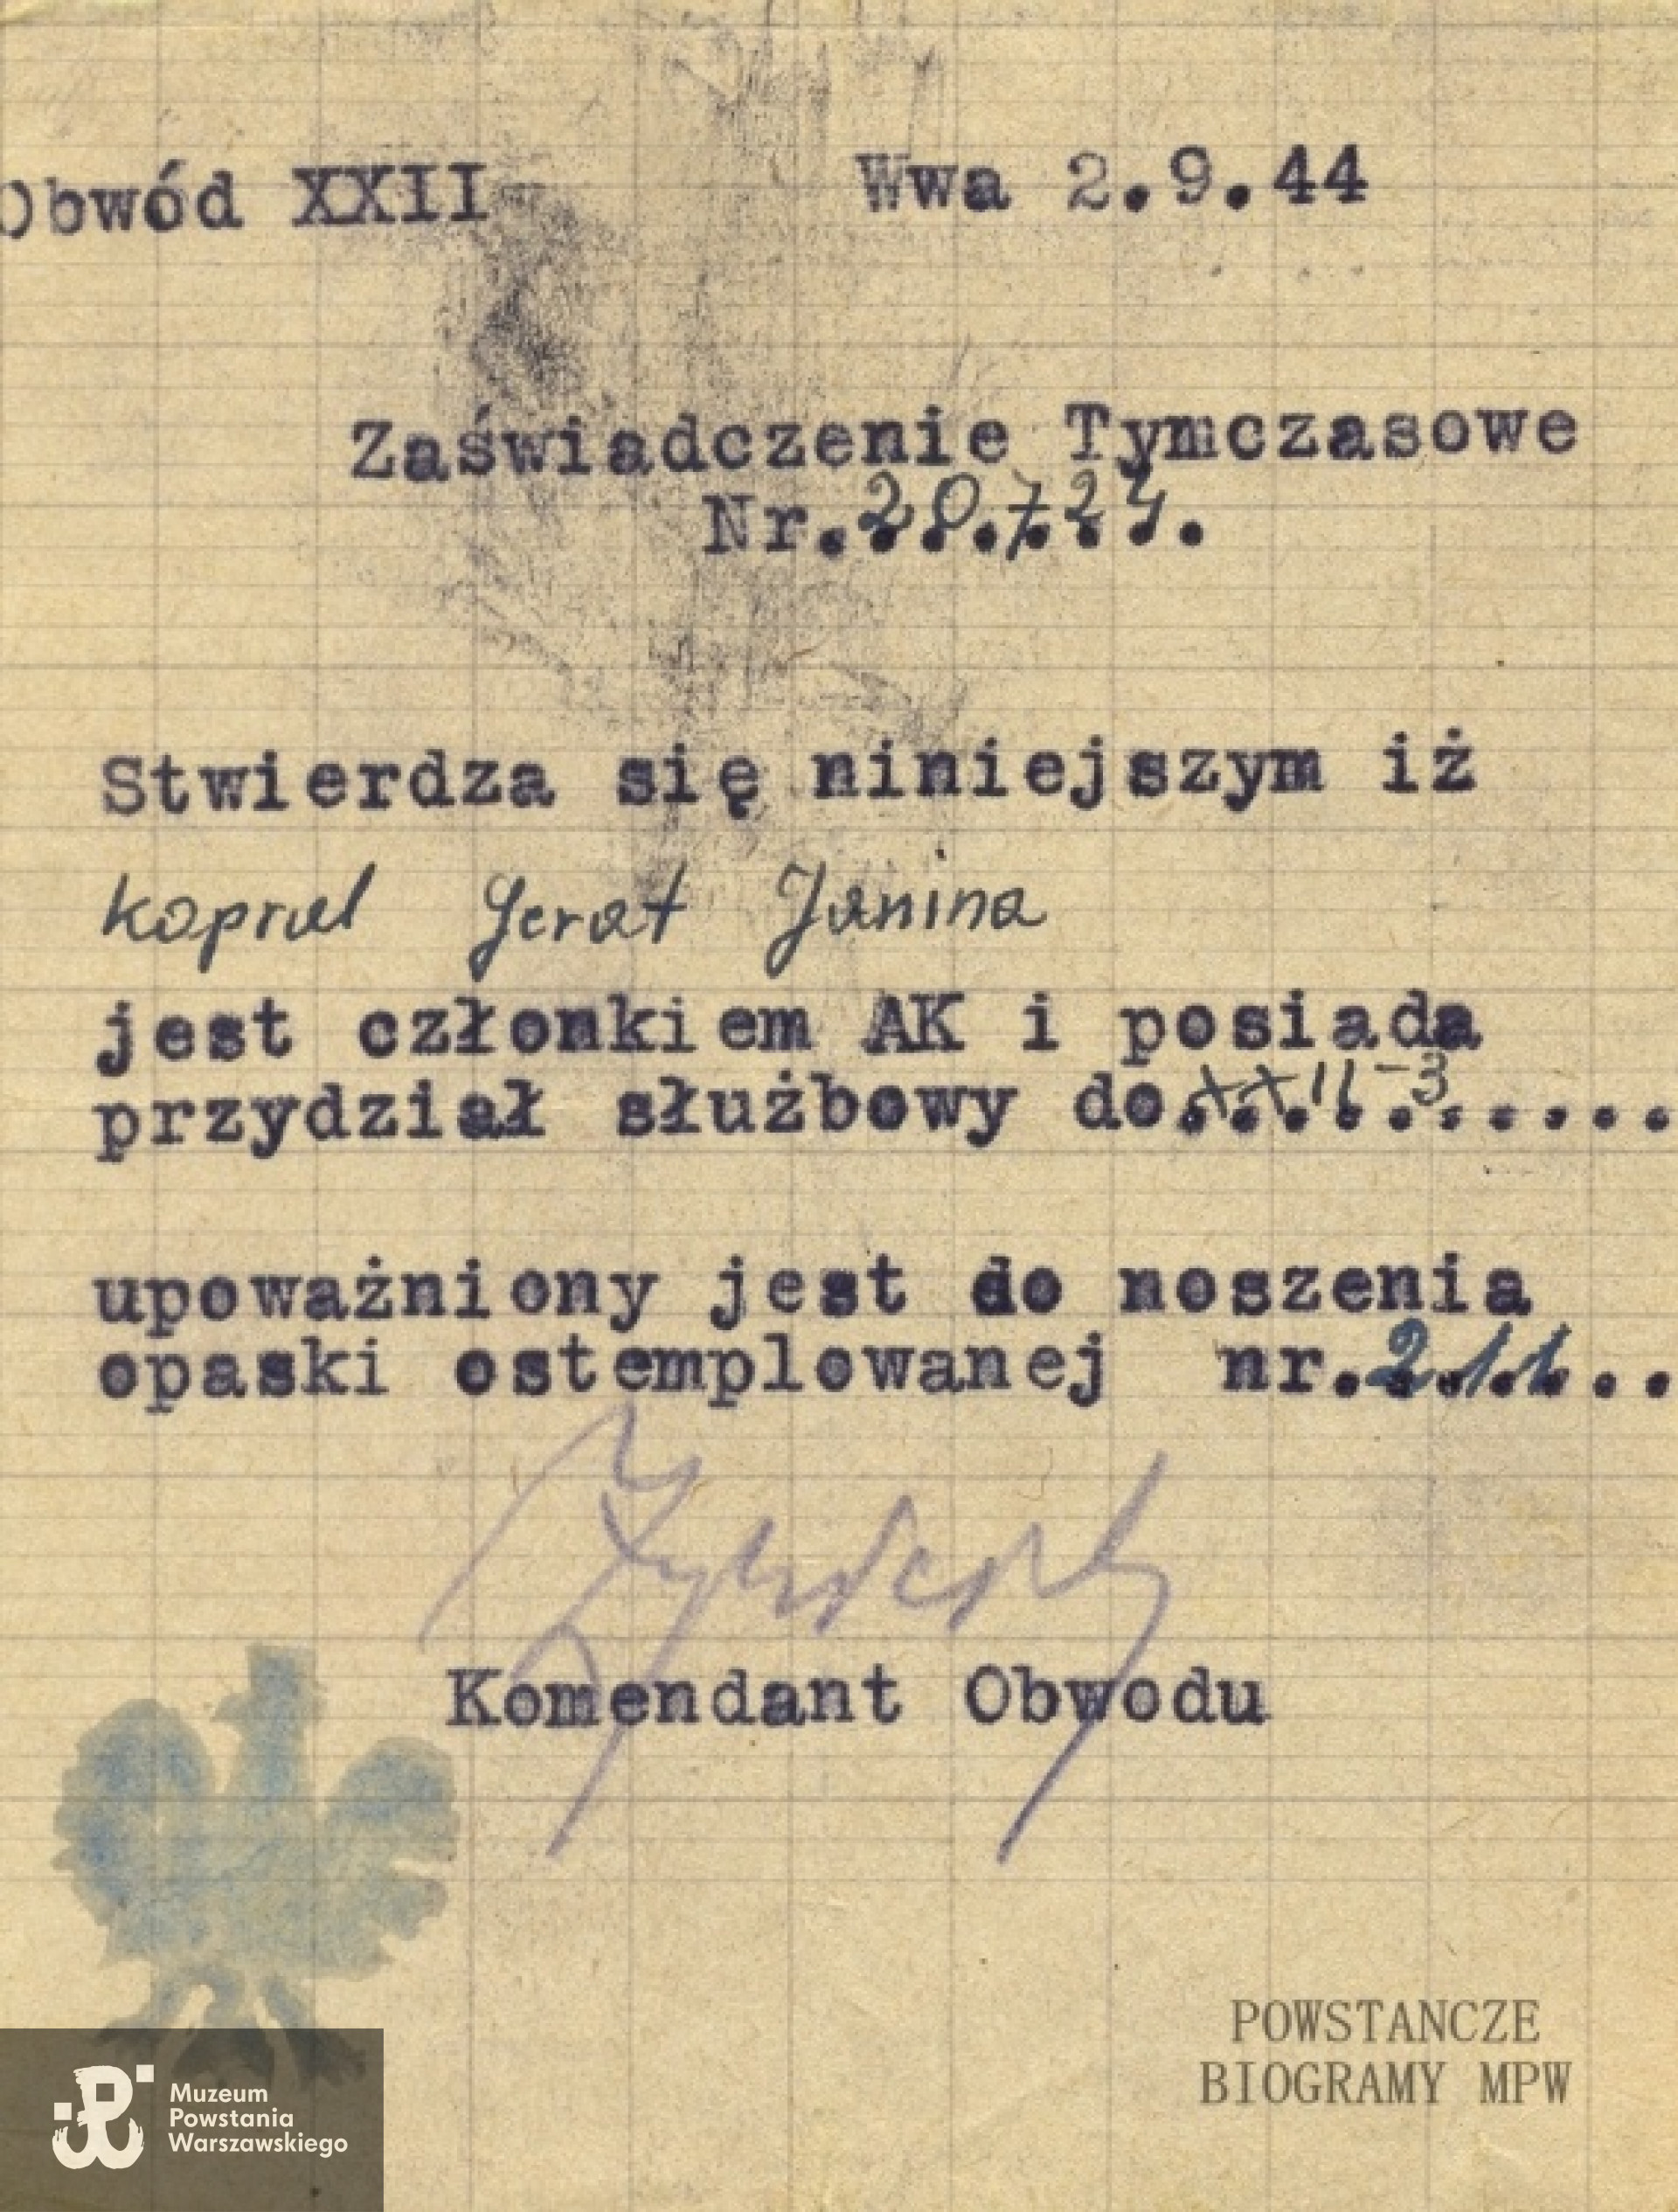 Obwód XXII Wwa 2.9.44
Zaświadczenie Tymczasowe
Nr. 28.724.
Stwierdza się niniejszym iż
kapral Gerat Janina
jest członkiem AK i posiada
przydział służbowy do XXII-3......
upoważniony jest do noszenia
opaski ostemplowanej nr. 211...
Komendant Obwodu
POWSTANCZE
BIOGRAMY MPW
Muzeum
Powstania
Warszawskiego